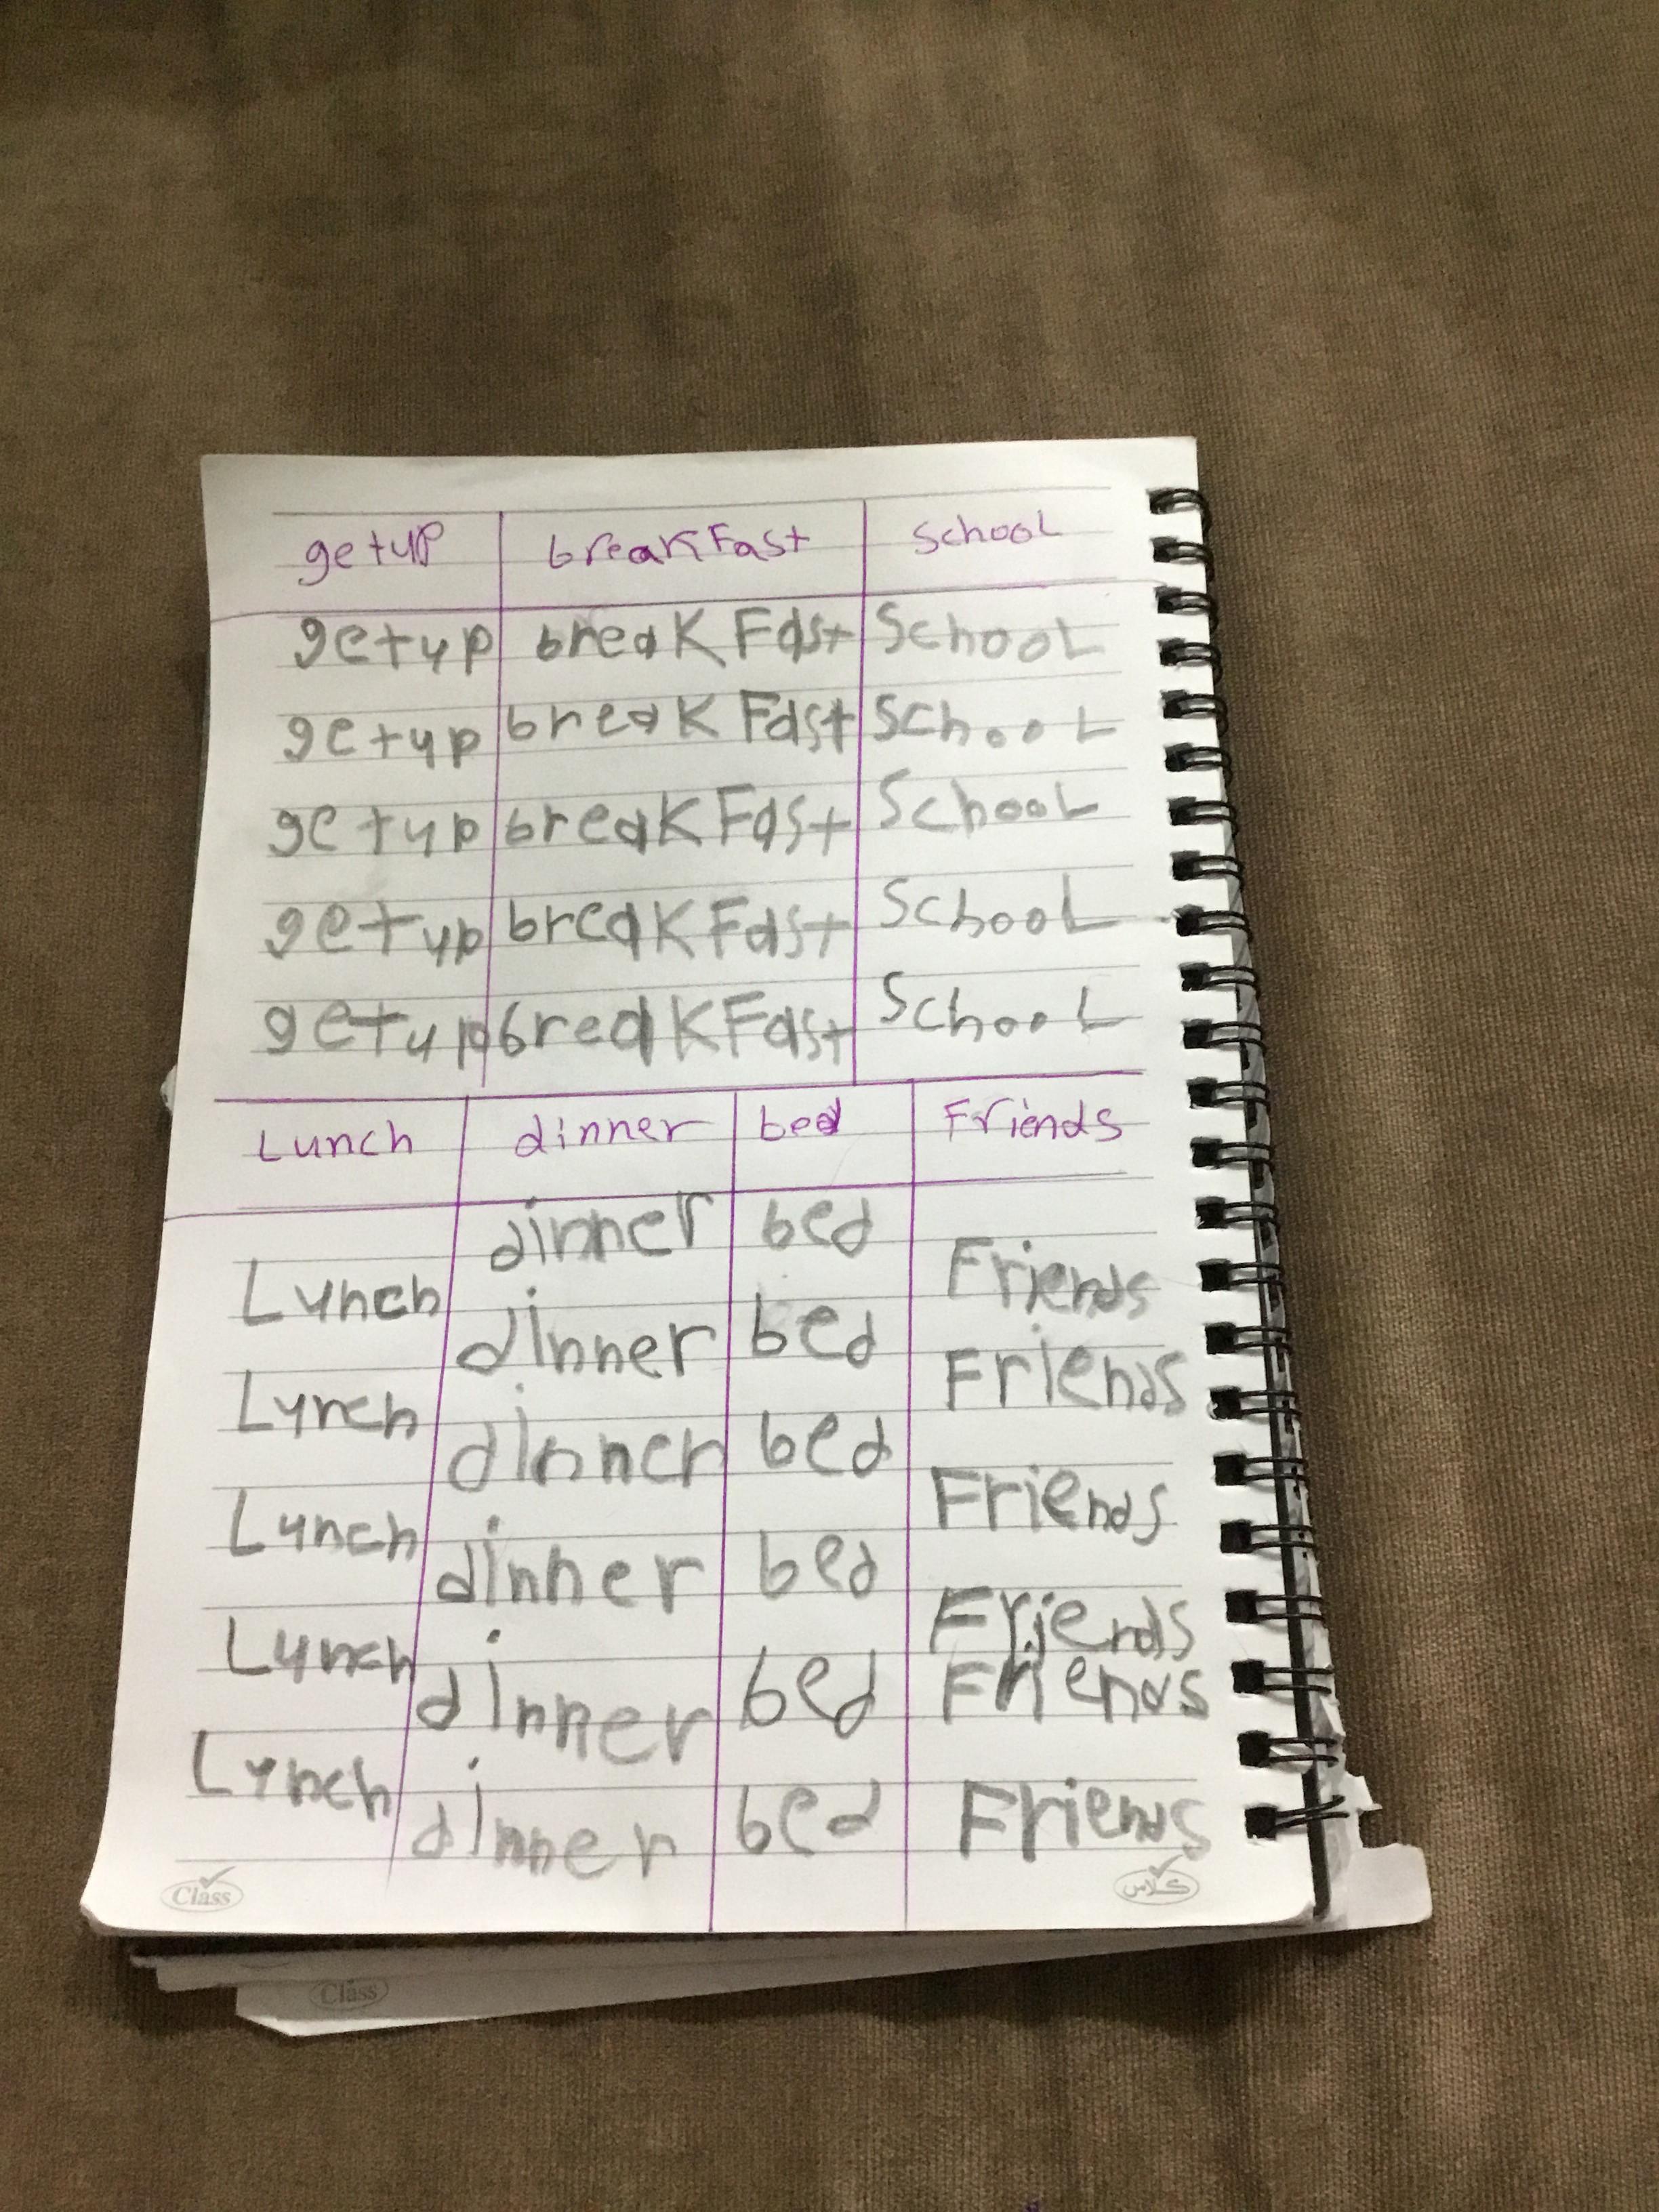 getup breakFast School
getup breakFast School
getup breakFast School
getup breakFast School
getup breakFast School
getup breakFast School
Lunch dinner bed Friends
Lunch dinner bed Friends
Lunch dinner bed Friends
Lunch dinner bed Friends
Lunch dinner bed Friends
Lunch dinner bed Friends
dinner bed Friends
Class کلاس
Class